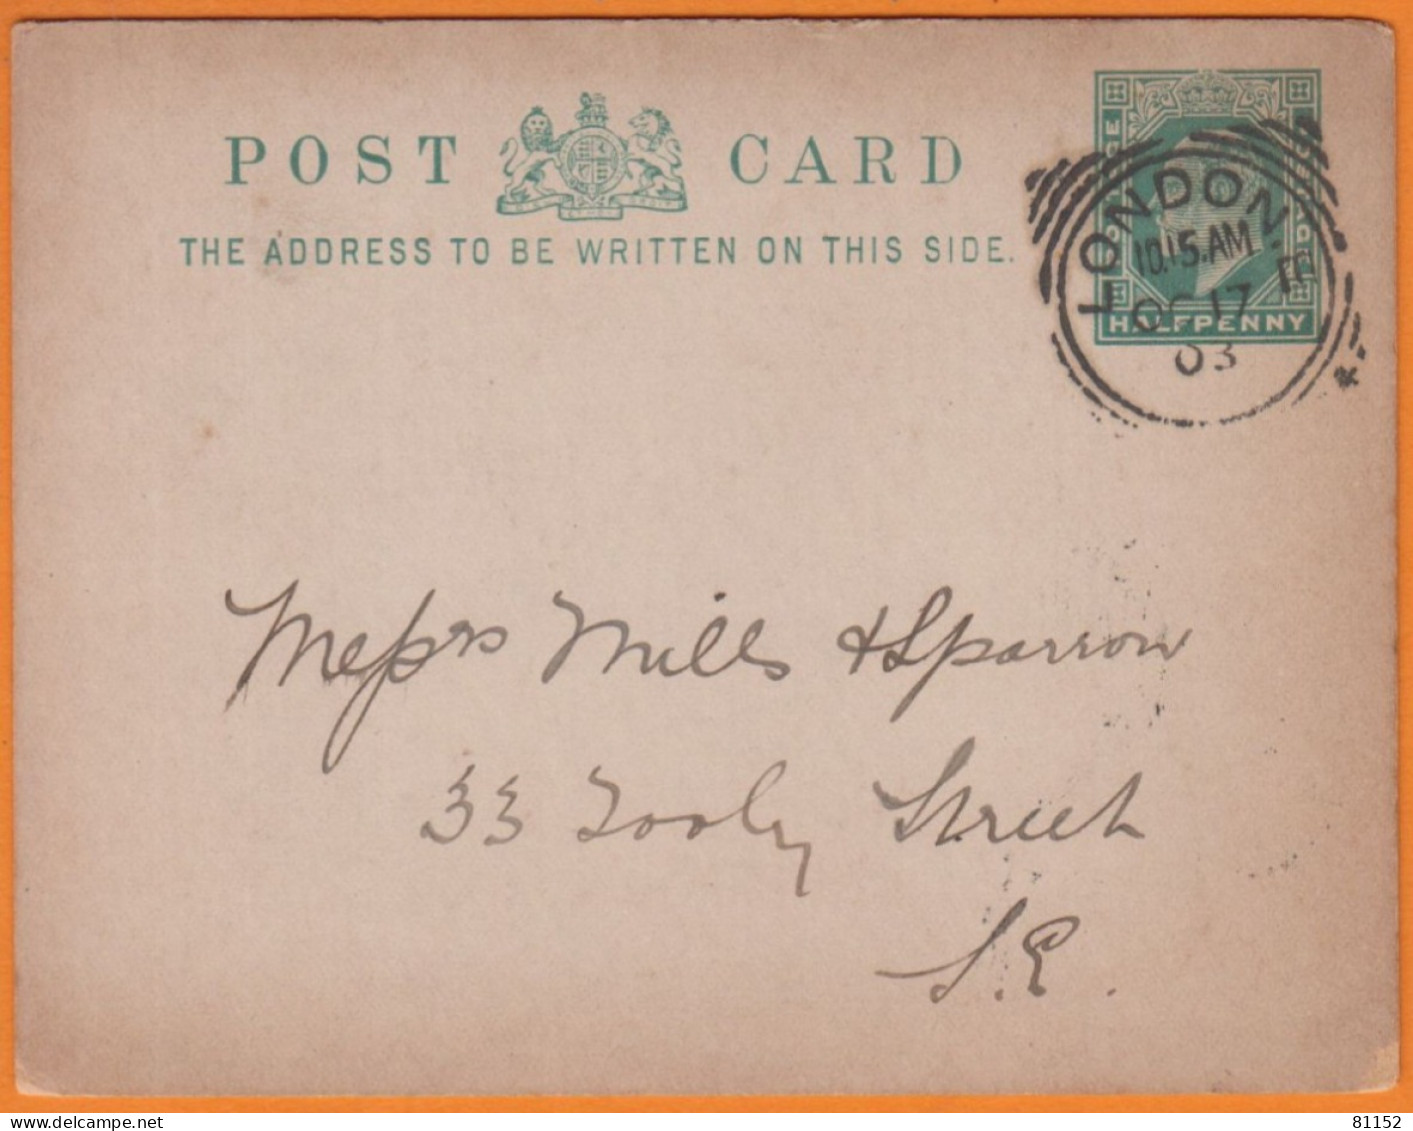 POST CARD
THE ADDRESS TO BE WRITTEN ON THIS SIDE.
HALFPENNY
LONDON. E.C.
10.15.AM
OC 17
03
Messrs Mills & Sparrow
33 Tooley Street
S.E.
81152